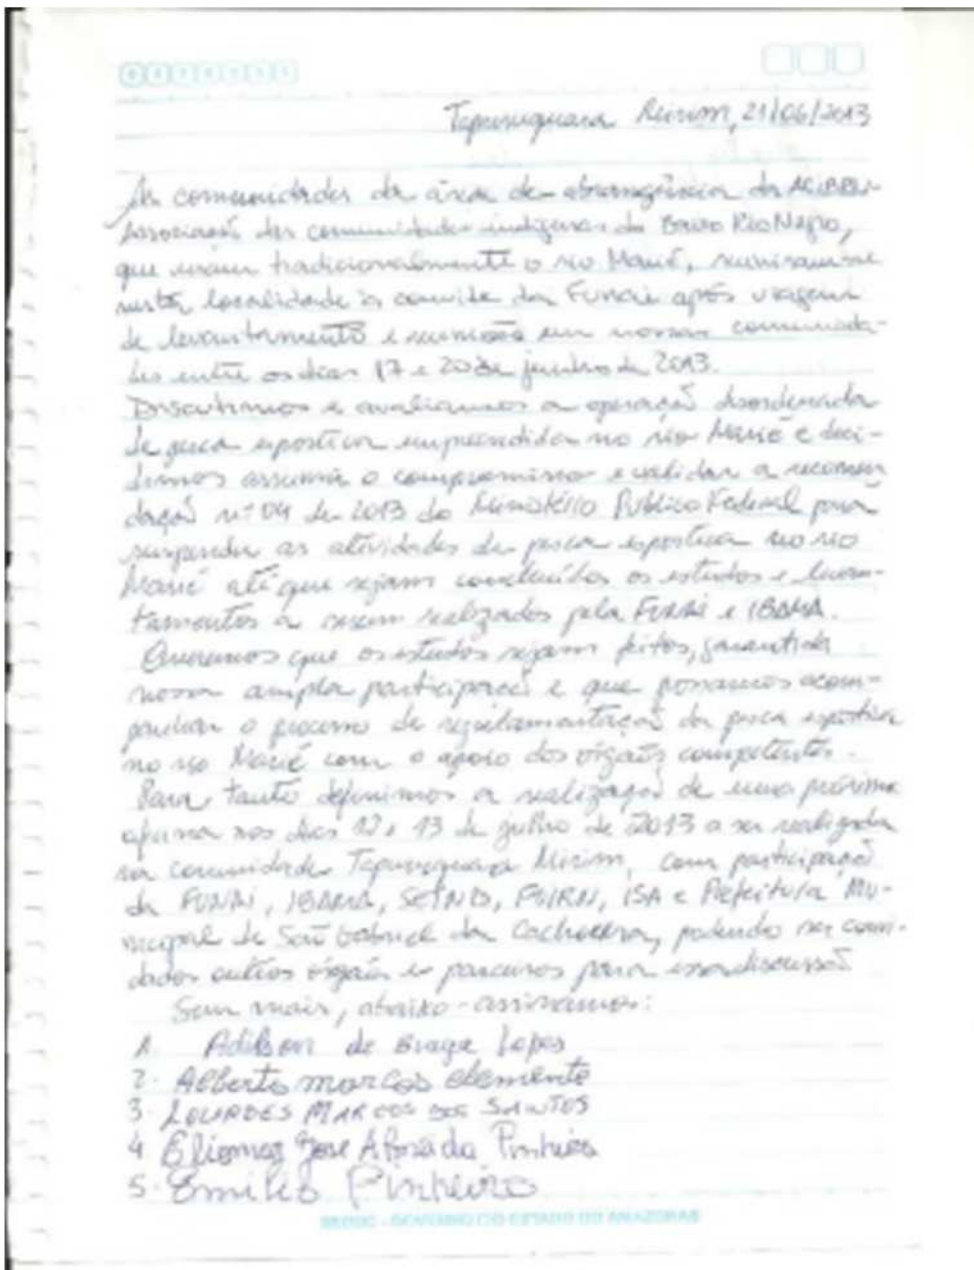 Tapuruquara Mirim, 21/06/2013
As comunidades da área de abrangência da ACIBRN
Associação das comunidades indígenas do Baixo Rio Negro,
que usam tradicionalmente o rio Marié, reuniram-se
nesta localidade à convite da Funai após viagem
de levantamento e reunião em nossas comunida-
des entre os dias 17 e 20 de junho de 2013.
Discutimos e avaliamos a operação desordenada
de pesca esportiva empreendida no rio Marié e deci-
dimos assumir o compromisso e validar a recomen
dação nº 04 de 2013 do Ministério Público Federal para
suspender as atividades de pesca esportiva no rio
Marié até que sejam concluídos os estudos e levan-
tamentos a serem realizados pela FUNAI e IBAMA.
Queremos que os estudos sejam feitos, garantida
nossa ampla participação e que possamos acom-
panhar o processo de regulamentação da pesca esportiva
no rio Marié com o apoio dos órgãos competentes.
Para tanto definimos a realização de uma próxima
nos dias 12 e 13 de julho de 2013 a ser realizada
na comunidade Tapuruquara Mirim, com participação
da FUNAI, IBAMA, SEIND, FOIRN, ISA e Prefeitura Mu-
nicipal de São Gabriel da Cachoeira, podendo ser convi-
dados outros órgãos e parceiros para essa discussão
Sem mais, abaixo-assinamos:
1. Adilson de Braga Lopes
2. Alberto marcos clemente
3. LOURDES MARCOS DOS SANTOS
4 Eliomar Jose Pinheiro
5. Emilio Pinheiro
SEDUC - GOVERNO DO ESTADO DO AMAZONAS